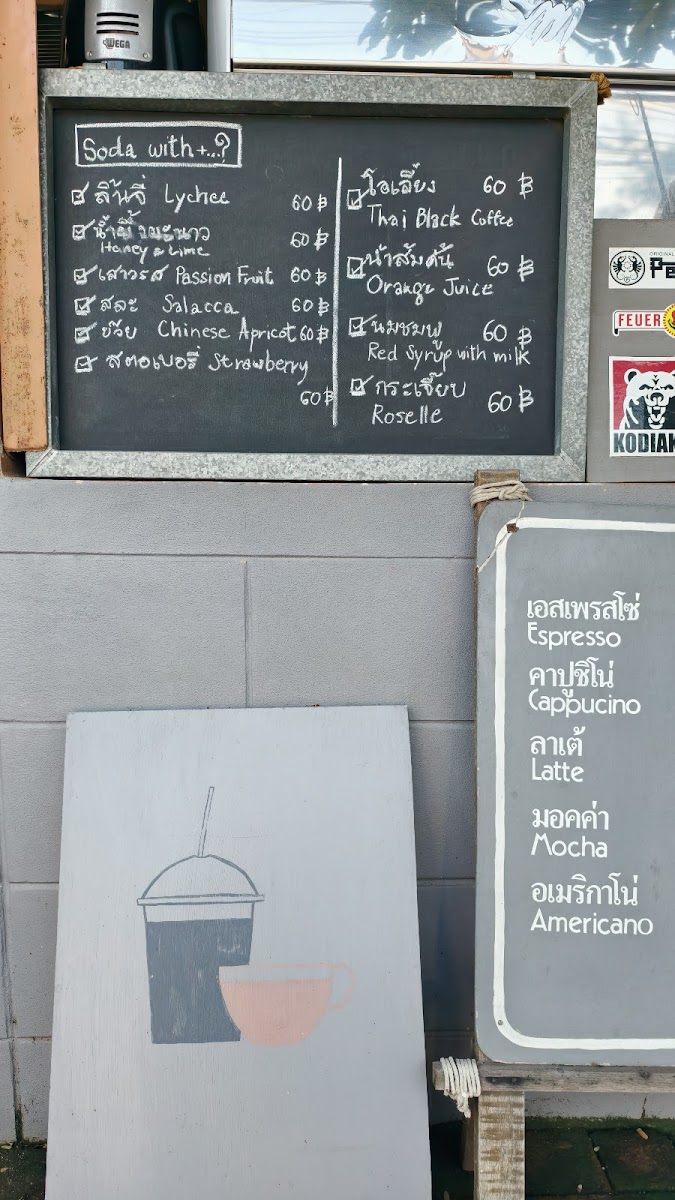 WEGA
Soda with +...?
ลิ้นจี่ Lychee 60 ฿
น้ำผึ้งมะนาว 60 ฿
Honey & Lime
เสาวรส Passion Fruit 60 ฿
สละ Salacca 60 ฿
บ๊วย Chinese Apricot 60 ฿
สตอเบอรี่ Strawberry
60 ฿
โอเลี้ยง 60 ฿
Thai Black Coffee
น้ำส้มคั้น 60 ฿
Orange Juice
นมชมพู 60 ฿
Red Syrup with milk
กระเจี๊ยบ 60 ฿
Roselle
ORIGINAL
FEUER
KODIAK
เอสเพรสโซ่
Espresso
คาปูชิโน่
Cappucino
ลาเต้
Latte
มอคค่า
Mocha
อเมริกาโน่
Americano